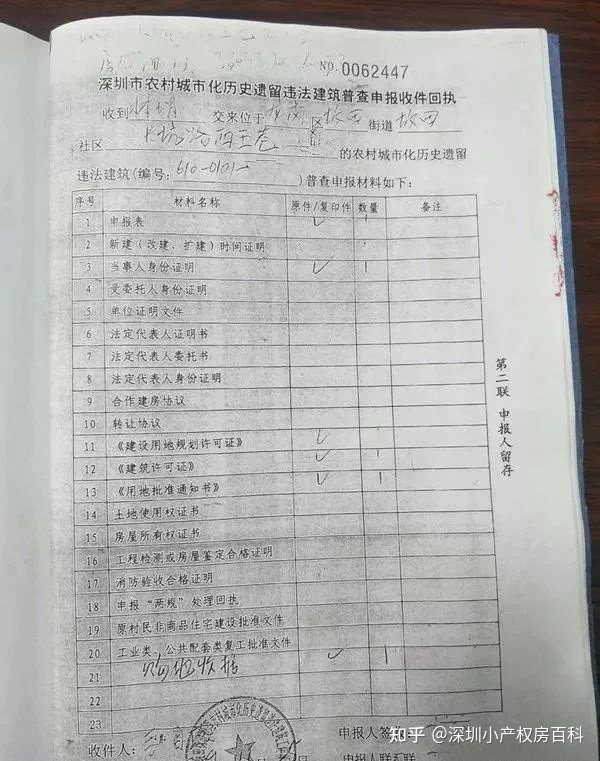 NO.0062447
深圳市农村城市化历史遗留违法建筑普查申报收件回执
收到 交来位于 区 坂田 街道 坂田
社区 的农村城市化历史遗留
违法建筑(编号: 610-0101 )普查申报材料如下:
序号 材料名称 原件/复印件 数量 备注
1 申报表 ✓ 1
2 新建(改建、扩建)时间证明
3 当事人身份证明 ✓ 1
4 受委托人身份证明
5 单位证明文件
6 法定代表人证明书
7 法定代表人委托书
8 法定代表人身份证明
9 合作建房协议
10 转让协议
11 《建设用地规划许可证》 ✓
12 《建筑许可证》 ✓ 1
13 《用地批准通知书》 ✓ 1
14 土地使用权证书
15 房屋所有权证书
16 工程检测或房屋鉴定合格证明
17 消防验收合格证明
18 申报“两规”处理回执
19 原村民非商品住宅建设批准文件
20 工业类、公共配套类复工批准文件
21 收据 ✓ 1
22
23
收件人: 申报人签
申报人联系
第二联 申报人留存
知乎 @深圳小产权房百科